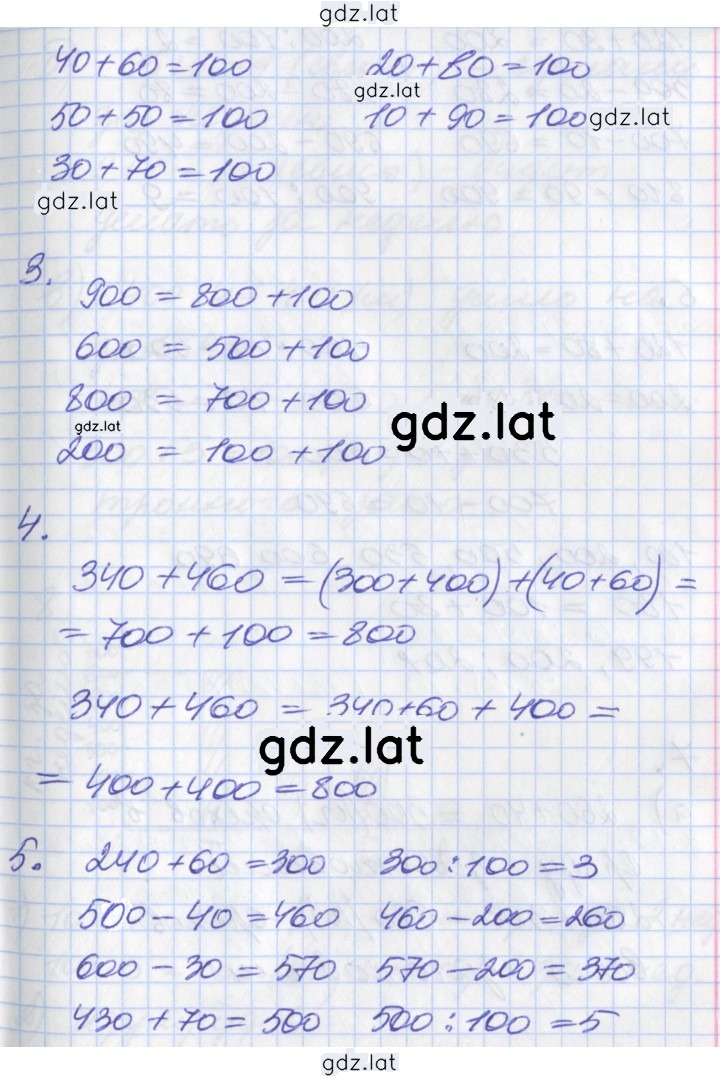 gdz.lat
40+60=100 20+80=100
gdz.lat
50+50=100 10+90=100 gdz.lat
30+70=100
gdz.lat
3.
900 = 800+100
600 = 500+100
800 = 700+100
gdz.lat
gdz.lat
200 = 100+100
4.
340+460 = (300+400)+(40+60) =
= 700+100=800
340+460 = 340+60+400 =
gdz.lat
= 400+400=800
5. 240+60=300 300:100=3
500-40=460 460-200=260
600-30=570 570-200=370
430+70=500 500:100=5
gdz.lat